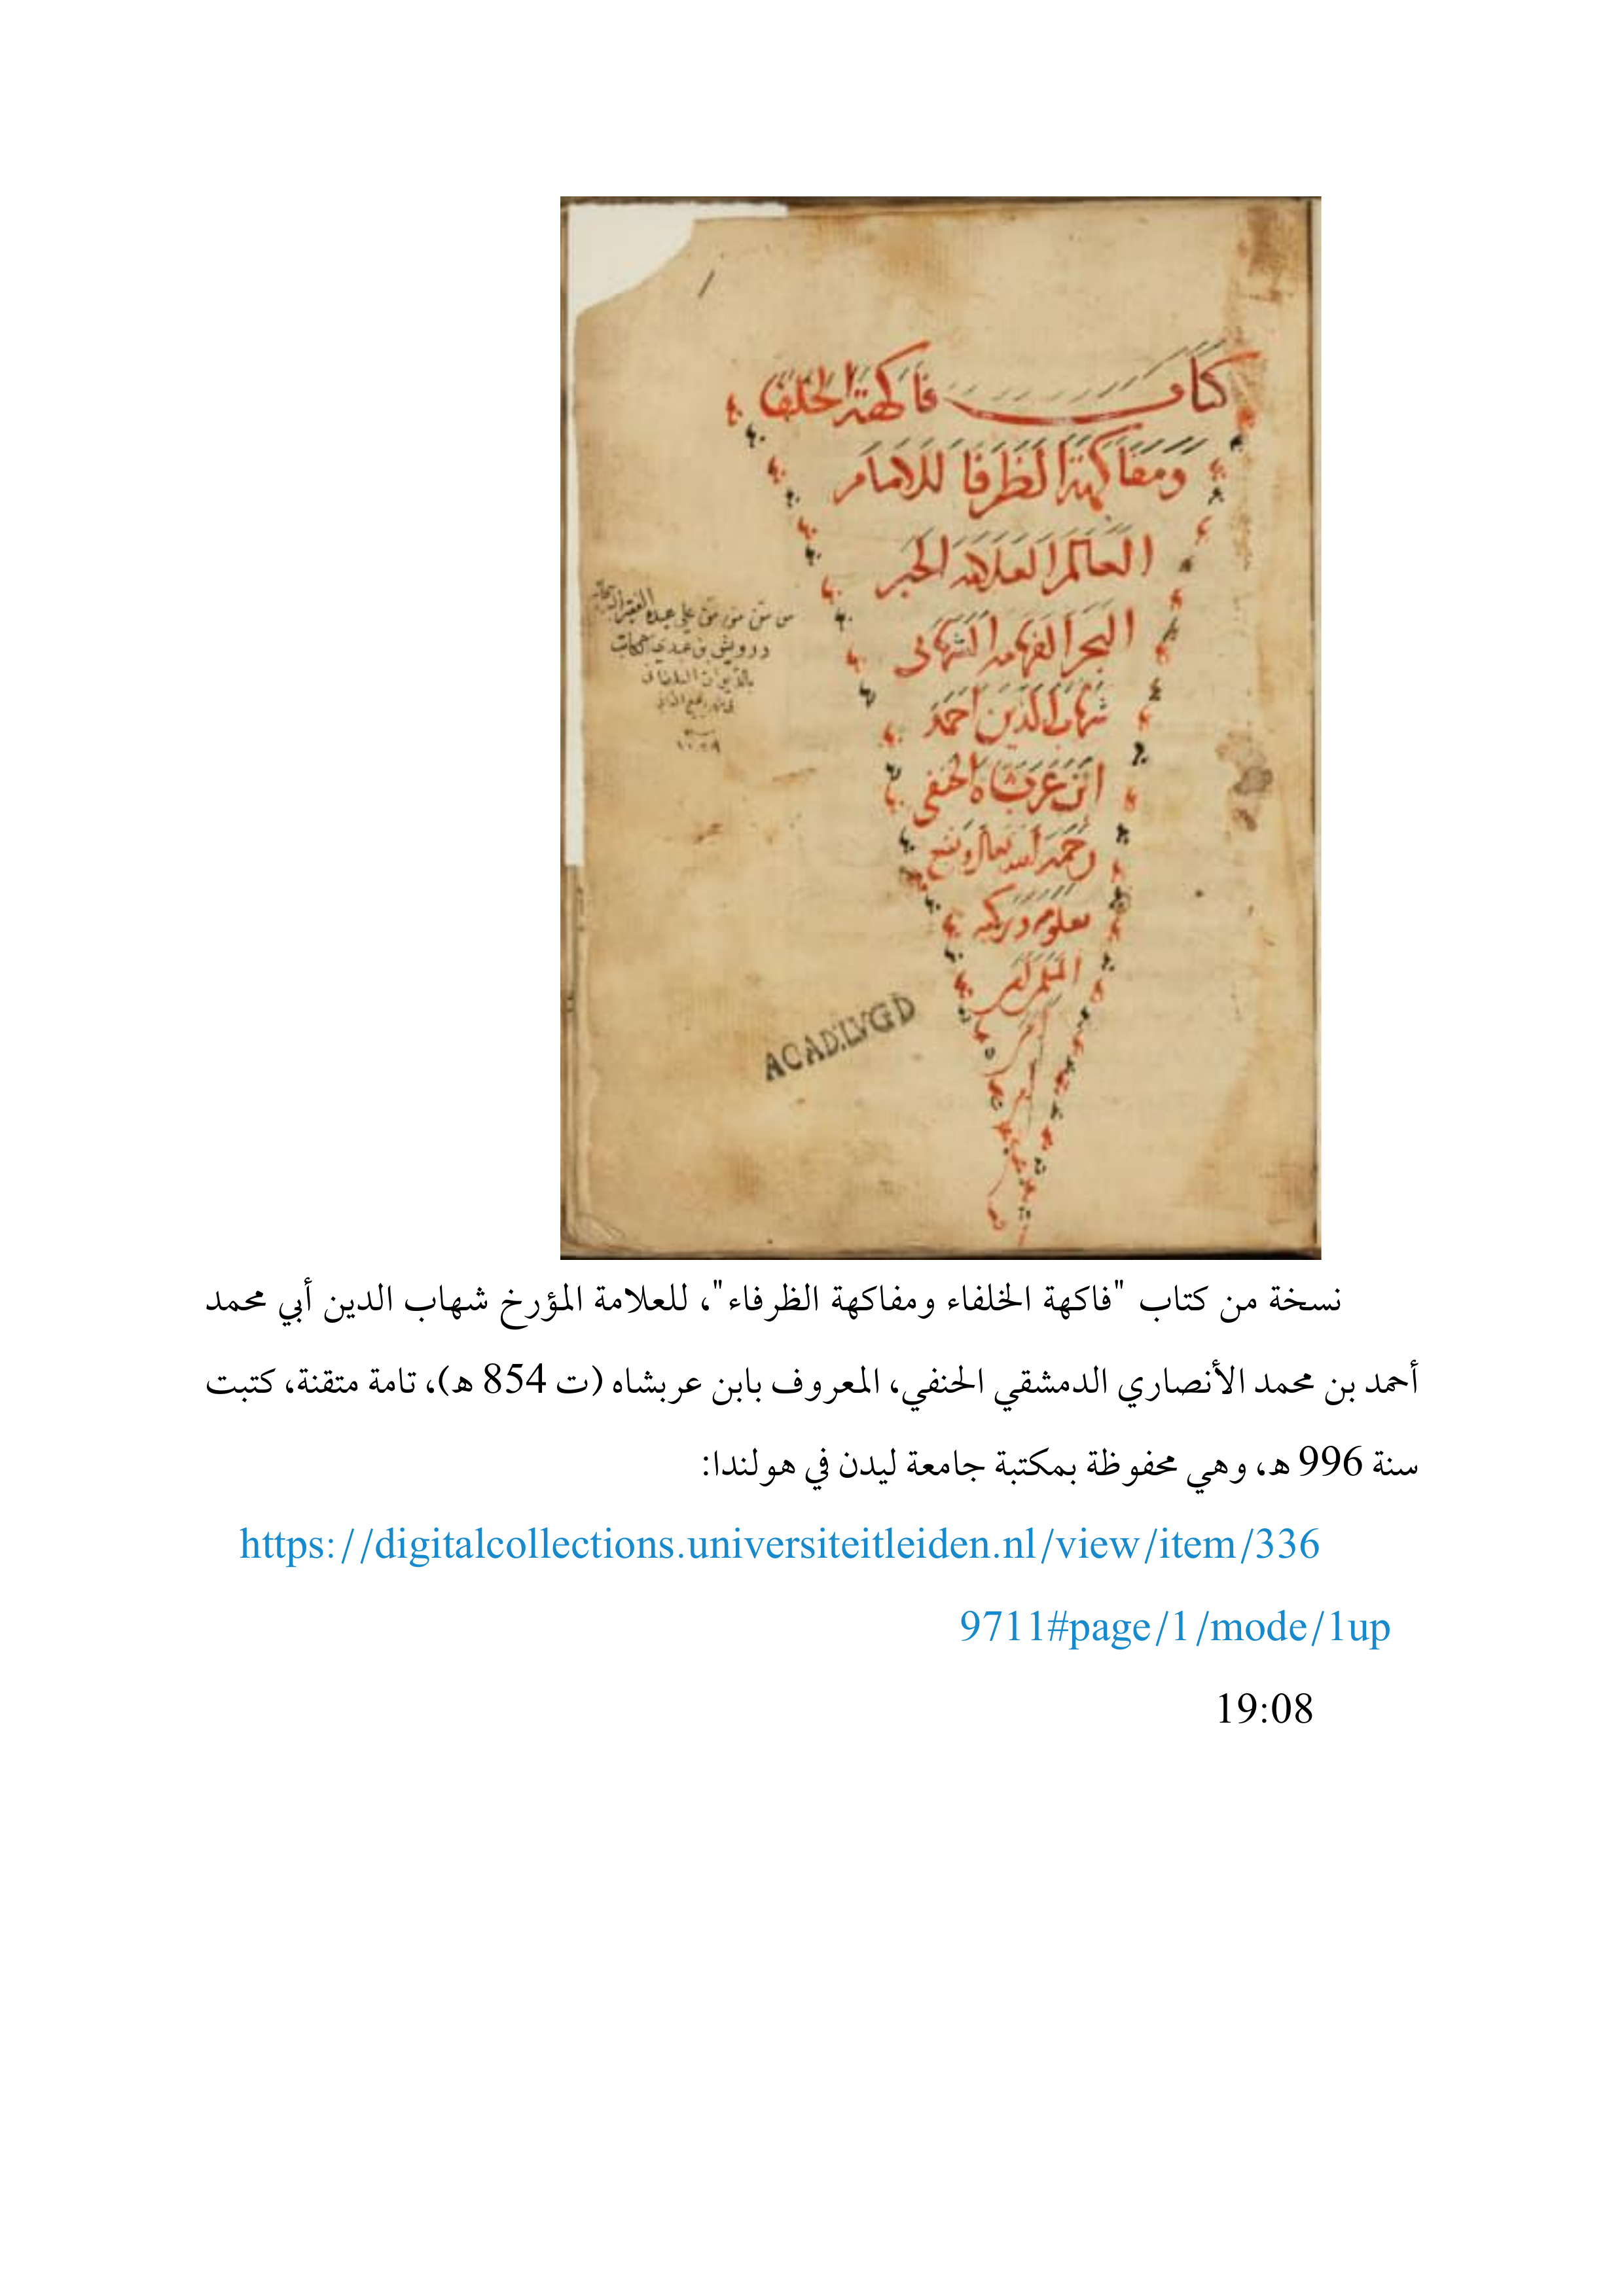 كتاب فاكهة الخلفا
ومفاكهة الظرفا للامام
العالم العلامة الحبر
البحر الفهامة الشهابى
شهاب الدين احمد
ابن عربشاه الحنفى
رحمه الله تعالى ونفع
بعلومه وبركته
المسلمين
امين
على عبده الفقير
درويش بن عبدى
ACAD.LVGD
نسخة من كتاب "فاكهة الخلفاء ومفاكهة الظرفاء"، للعلامة المؤرخ شهاب الدين أبي محمد
أحمد بن محمد الأنصاري الدمشقي الحنفي، المعروف بابن عربشاه (ت 854 ه)، تامة متقنة، كتبت
سنة 996 ه، وهي محفوظة بمكتبة جامعة ليدن في هولندا:
https://digitalcollections.universiteitleiden.nl/view/item/336
9711#page/1/mode/1up
19:08